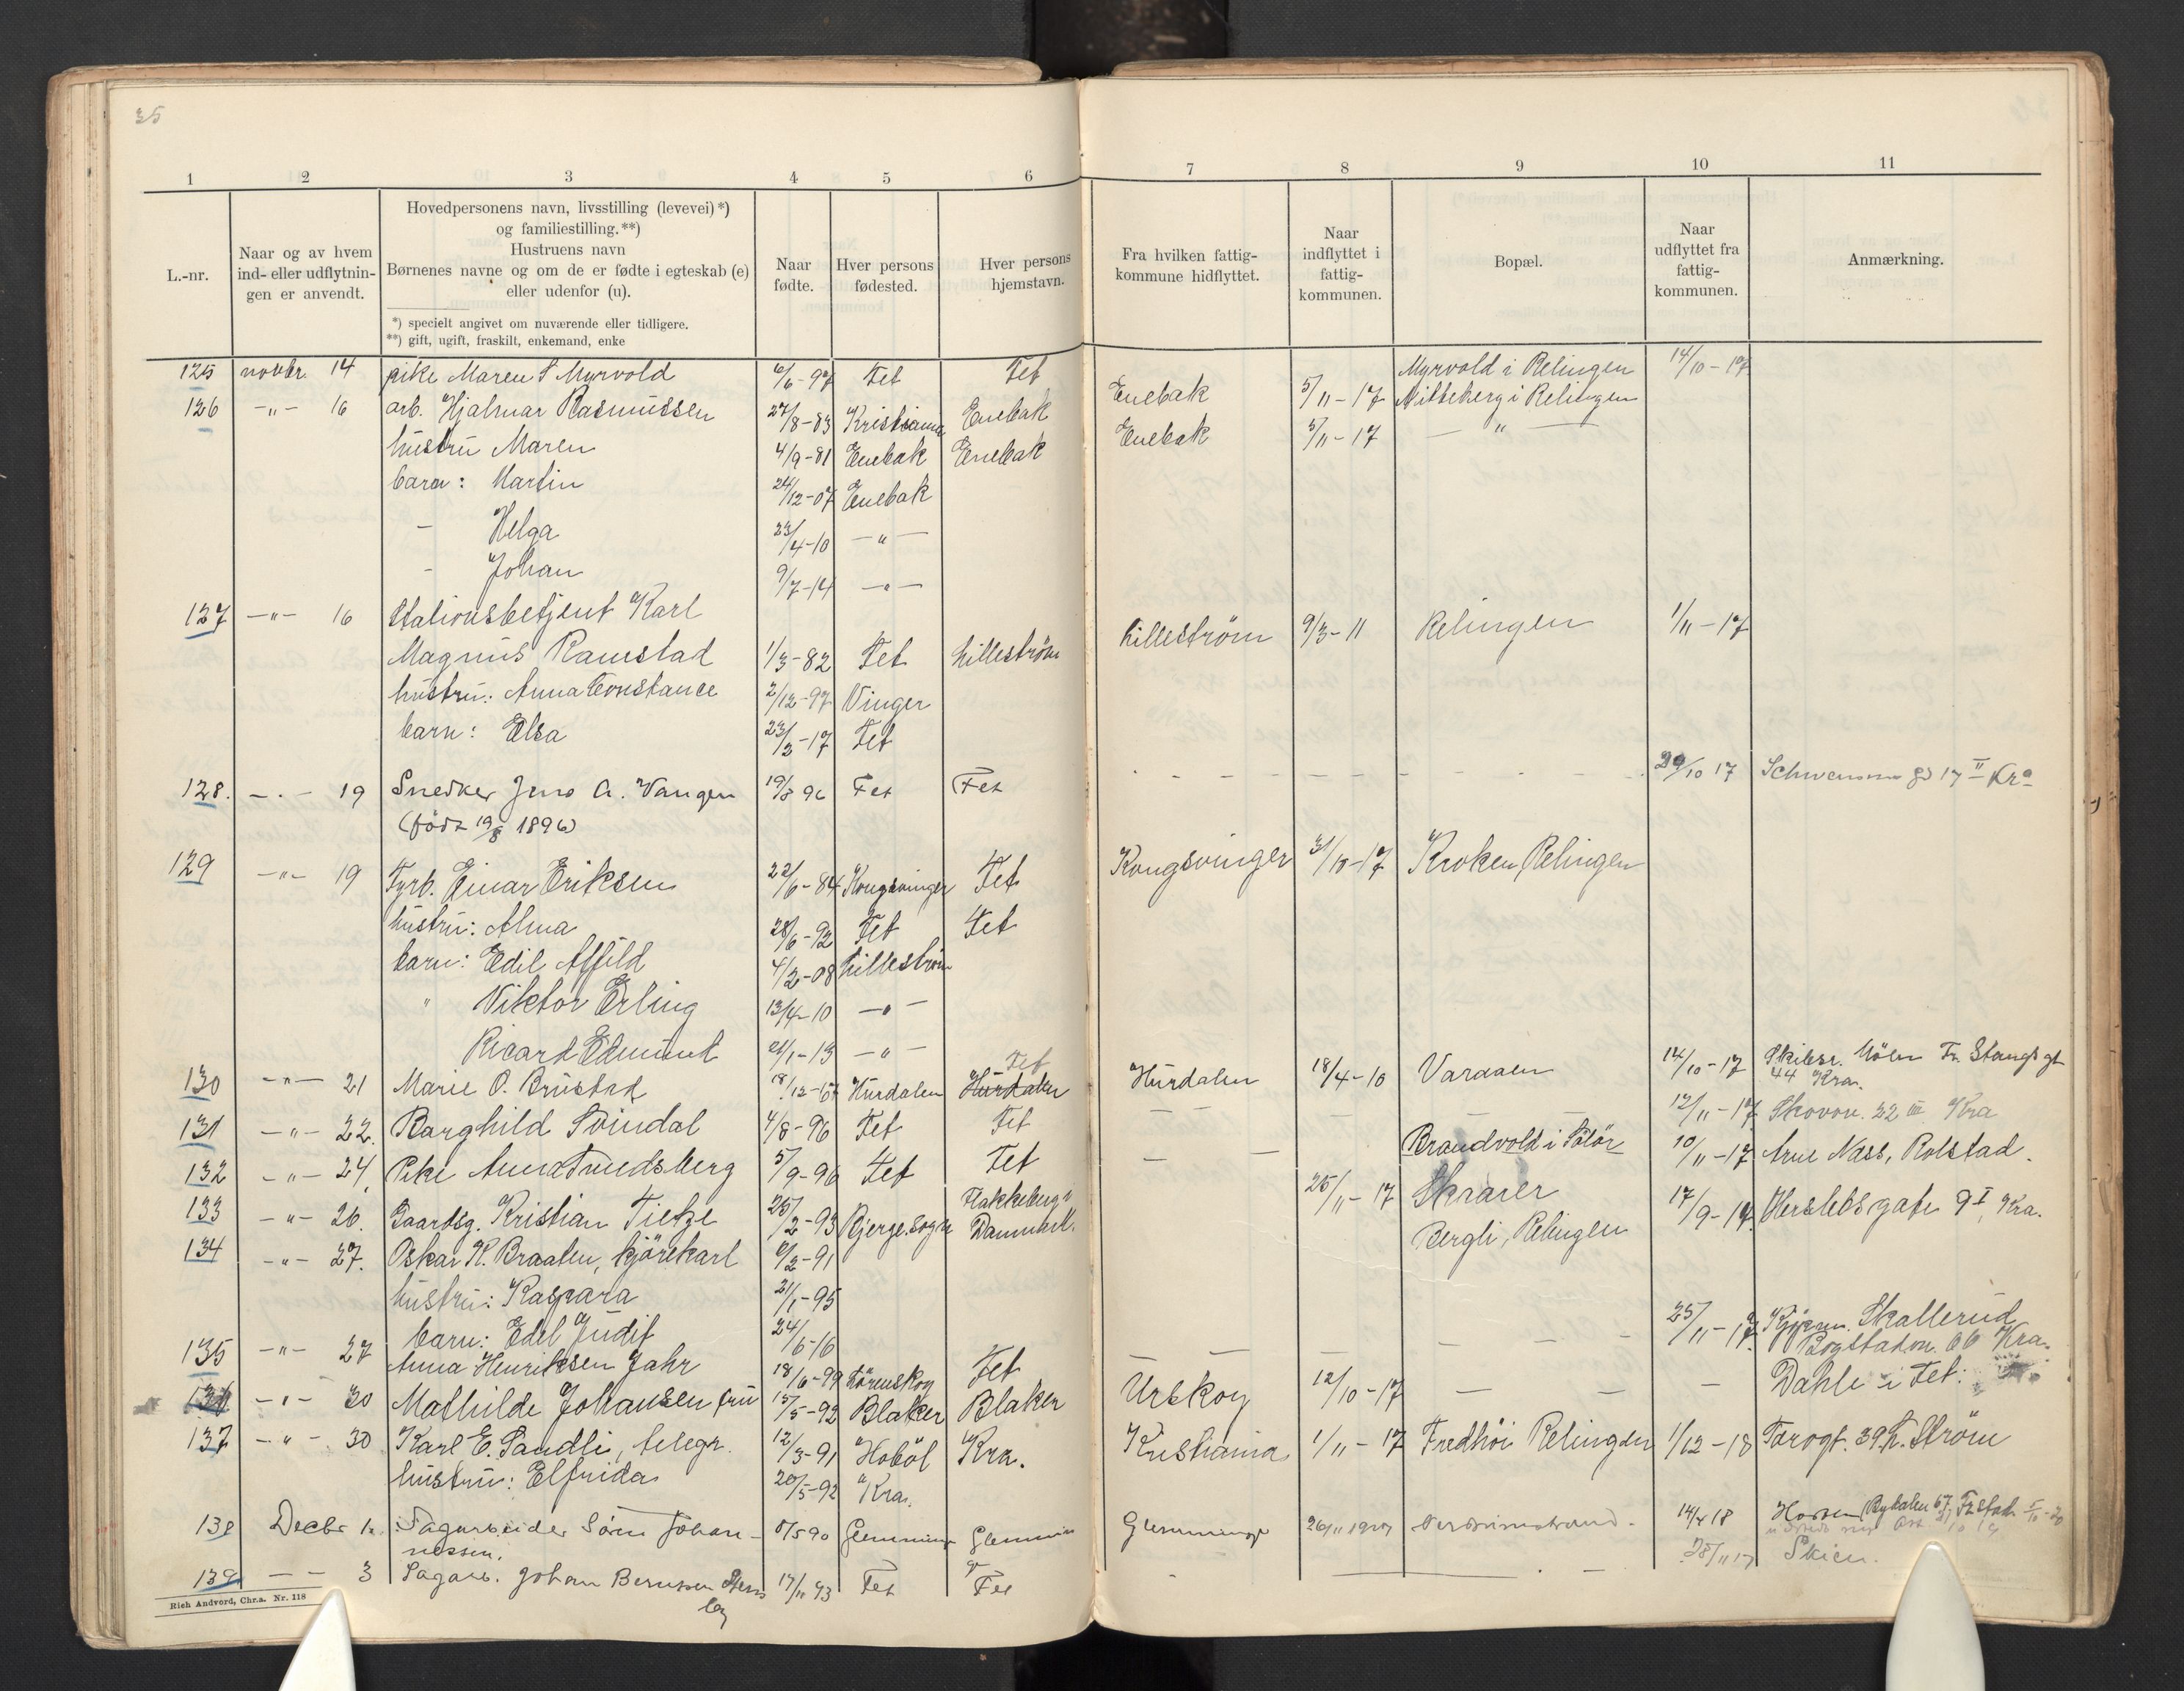 35
1 2 3 4 5 6 7 8 9 10 11
L.-nr.
Naar og av hvem
ind- eller udflytnin-
gen er anvendt.
Hovedpersonens navn, livsstilling (levevei)*)
og familiestilling.**)
Hustruens navn
Børnenes navne og om de er fødte i egteskab (e)
eller udenfor (u).
*) specielt angivet om nuværende eller tidligere.
**) gift, ugift, fraskilt, enkemand, enke
Naar
fødte.
Hver persons
fødested.
Hver persons
hjemstavn.
Fra hvilken fattig-
kommune hidflyttet.
Naar
indflyttet i
fattig-
kommunen.
Bopæl.
Naar
udflyttet fra
fattig-
kommunen.
Anmærkning.
125 novbr. 14 pike Maren S Myrvold 6/6-97 Fet Fet Myrvold i Relingen 14/10-17
126 -"- 16 arb. Hjalmar Rasmussen 27/8-83 Kristiania Enebak Enebak 5/11-17 Nitteberg i Relingen
hustru Maren 4/9-81 Enebak Enebak Enebak 5/11-17 — " —
barn: Martin 24/12-07 Enebak
- Helga 23/4-10 -"-
- Johan 9/7-14 -"-
127 -"- 16 Stationsbetjent Karl
Magnus Ramstad 1/3-82 Fet Lilleström Lilleström 9/3-11 Relingen 1/11-17
hustru: Anna Constance 2/12-97 Vinger
barn: Elsa 23/2-17 Fet
128. -"- 19 Snedker Jens A. Vangen 19/8 96 Fet Fet 29/10 17 Schwensens gd 17 II Kra
(født 19/8 1896)
129 -"- 19 Fyrb. Einar Eriksen 22/6-84 Kongsvinger Fet Kongsvinger 31/10-17 Kroken, Relingen
hustru: Alma 28/6-92 Fet Fet
barn: Edil Alfild 4/2-08 Lilleström
" Viktor Erling 13/4-10 -"-
Ricard Edmunt 21/1-13 -"-
130 -"- 21 Marie O. Brustad 18/12-67 Hurdalen Hurdalen Fet Hurdalen 18/4-10 Varaaen 14/10-17 Fr. Stangs gt
44 Kra.
131 -"- 22. Barghild Svindal 4/8-96 Fet Fet — — — — 12/11-17 Skovvn. 22 III Kra
132 -"- 24. Pike Anna Tundsberg 5/9-96 Fet Fet — — Brandvold i Solör 10/11-17 Arne Næss, Rolstad.
133 -"- 26. Gaardsg. Kristian Tietze 25/2-93 Bjerge.sogn Flakkebergs Danmark. 25/11-17 Skrarer 17/9-17. Herslebsgate 9 I, Kra.
134 -"- 27. Oskar K. Braaten, kjörekarl 6/2-91 Bergli, Relingen
hustru: Kaspara 21/1-95
barn: Edel Judit 24/6-16
135 -"- 27 Anna Henriksen Jahr 18/6-99 Lörenskog Fet — — — — — 25/11-17. Skallerud
Bogstadvn. 66 Kra.
-"- 30 Mathilde Johansen fru 15/5-92 Blaker Blaker Urskog 12/10-17 — — — Dahle i Fet.
137 -"- 30 Karl E. Sandli, telegr. 12/3-91 Hoböl Kra. Kristiania 1/11-17 Fredhöi Relingen 1/12-18 Torvgt. 39 L. Ström
hustru: Elfrida 20/5-92 Kra.
138 Decbr 1. Sagarbeider Sörn Johan-
nessen. 8/5 90 Glemminge Glemminge Glemminge 26/11 1917 14/4 18
139 — — 3 Sagarb. Johan Berntsen 17/11 93 Fet Fet 28/11 17 Skien.
Rich Andvord, Chr.a. Nr. 118